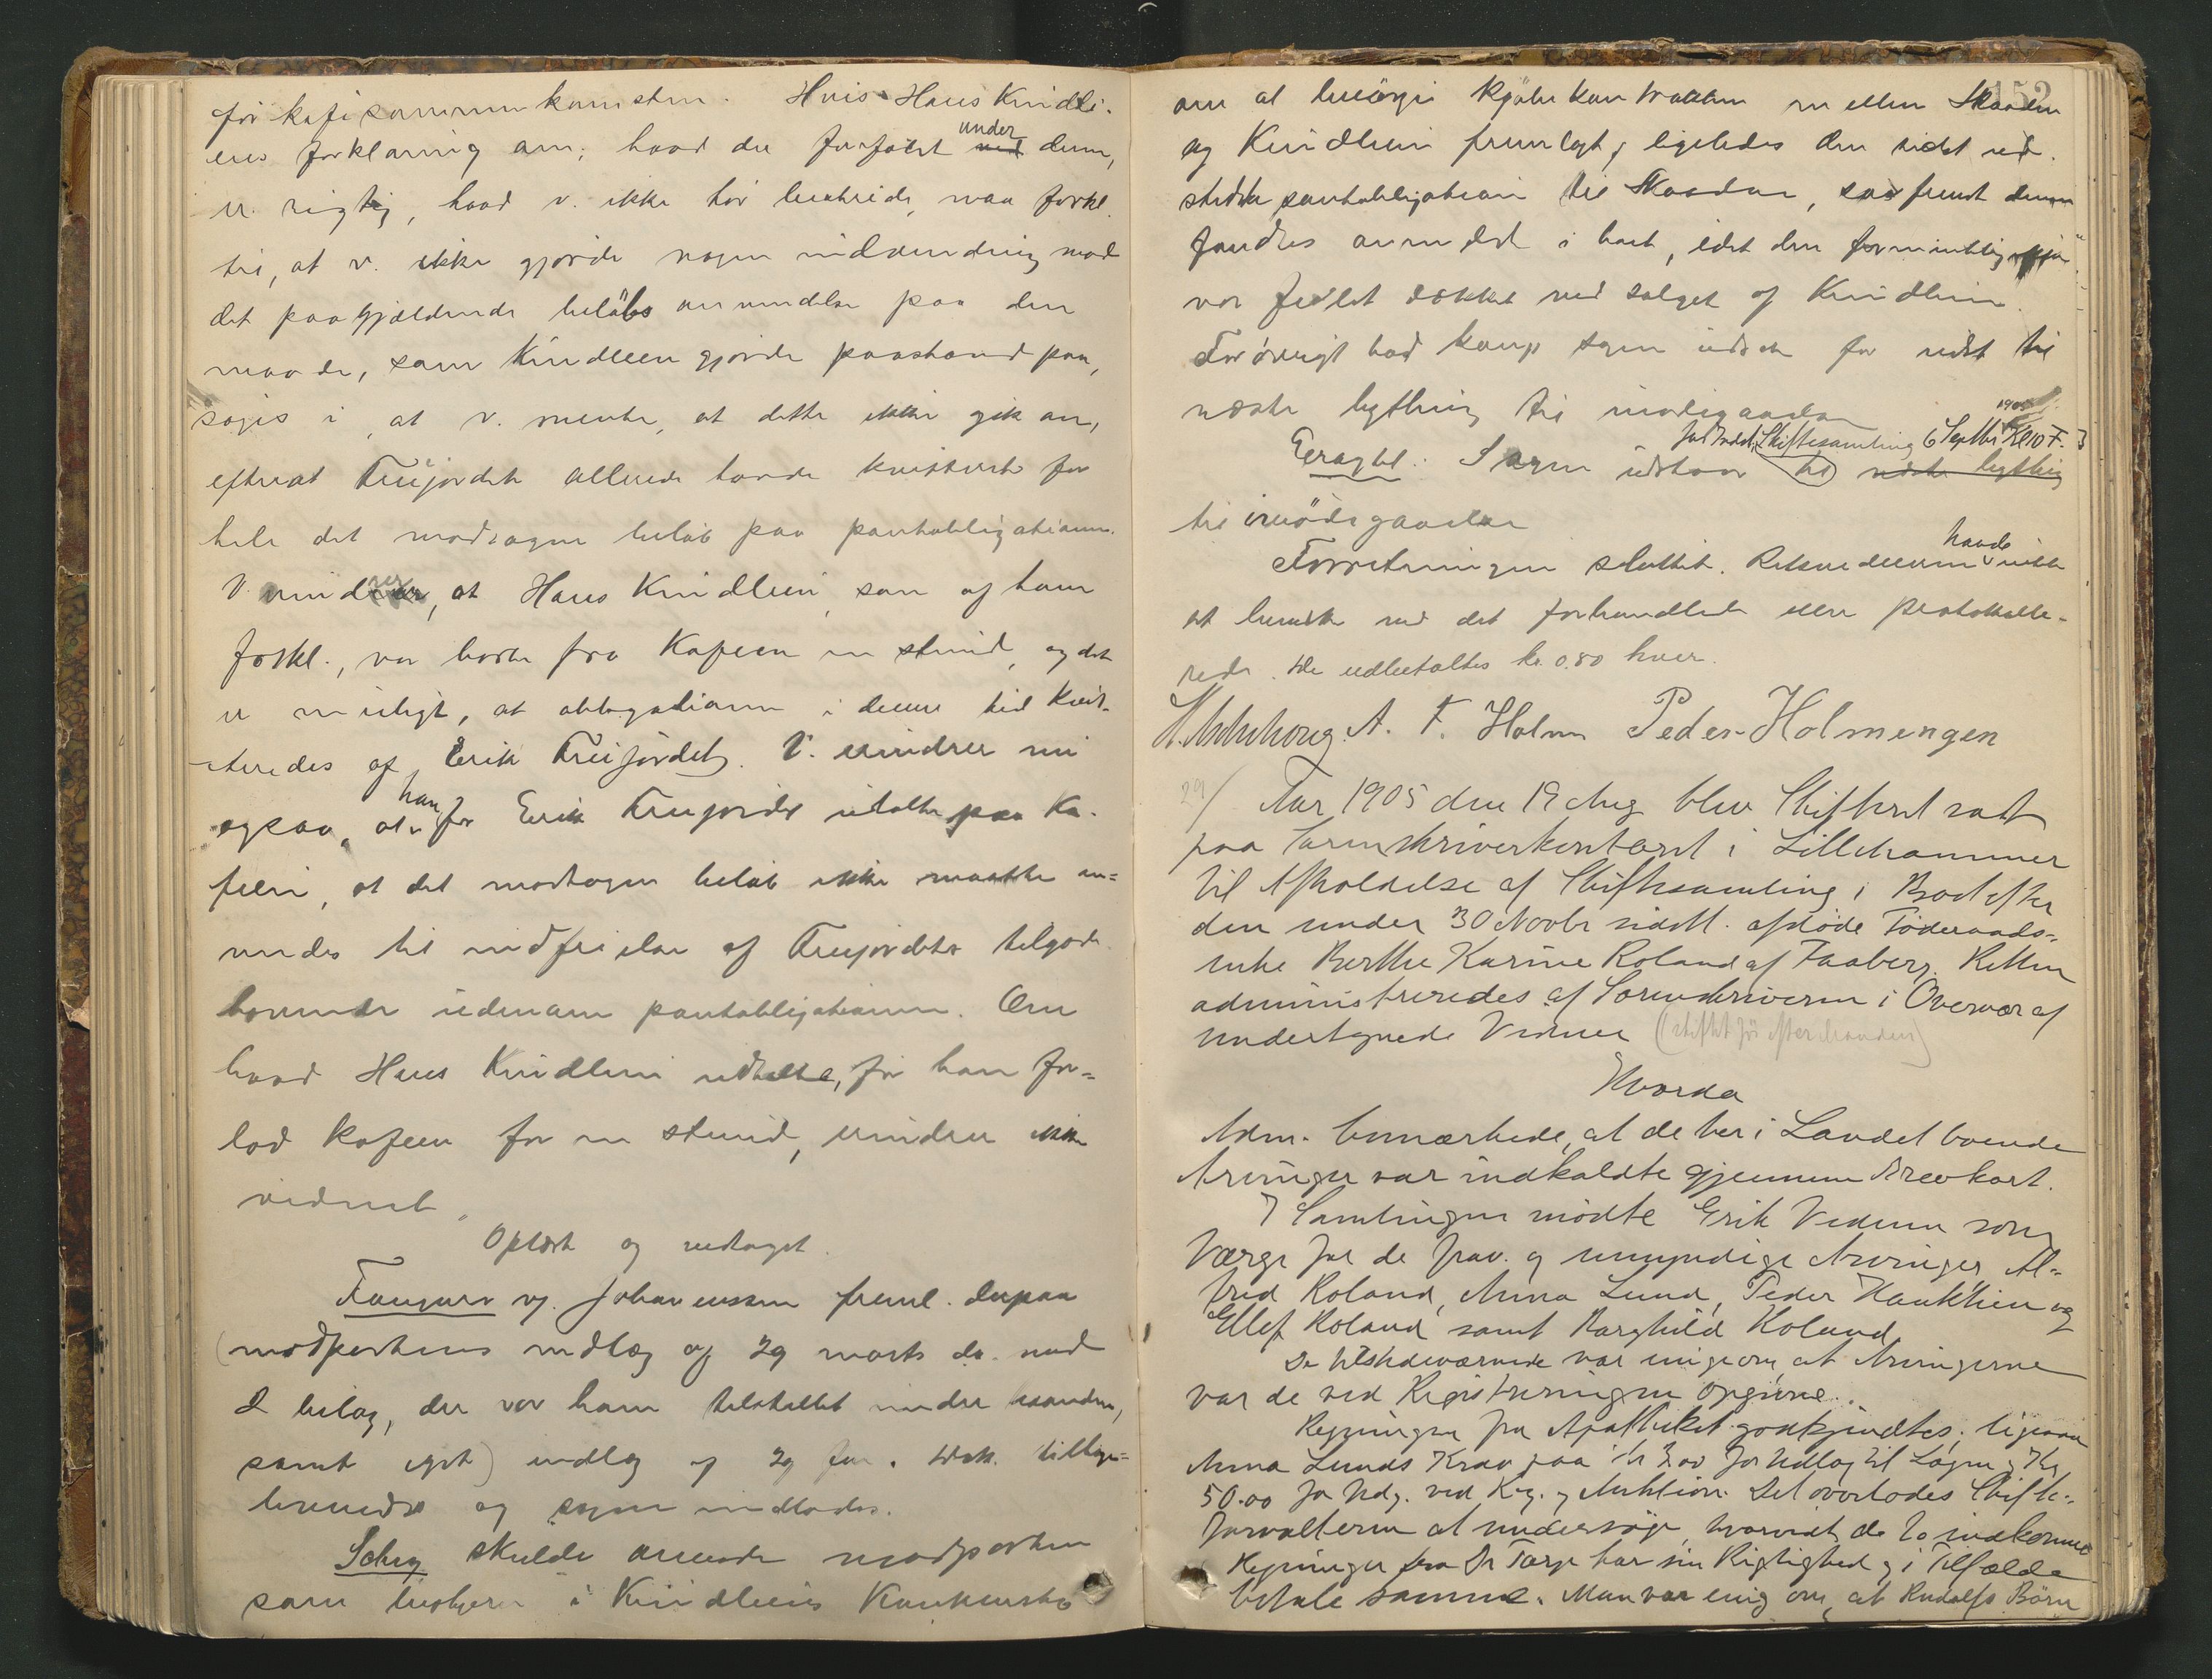 for kafesammenkomsten. Hvis Hans Kindli-
ens forklaring om, hvad der forfaldt under denne,
er rigtig, hvad v. ikke tør bestride, maa forkl.
til, at v. ikke gjorde nogen indvending mod
det paagjældende beløbs anvendelse paa den
maade, som Kindlien gjorde paastand paa,
søges i, at v. mente, at dette ikke gik an,
efterat Freijordet allerede havde kvitteret for
hele det modtagne beløb paa pantobligationen.
V. mindes, at Hans Kindlien, som af ham
forkl., var borte fra Kafeen en stund, og det
er muligt, at obligationen i denne tid kvit-
teredes af Erik Freijordet. V. mindes nu
ogsaa, at han før Erik Freijordet udtalte paa Ka-
feen, at det modtagne beløb ikke maatte an-
vendes til indfrielse af Freijordets tilgode-
havende udenom pantobligationen. Om
hvad Hans Kindlien udtalte, før han for-
lod kafeen for en stund, mindes ikke
vidnet.
Oplæst og vedtaget.
Fougner og Johannessen freml. derpaa
(modpartens indlæg af 29 marts ds. med
2 bilag, der var ham tilstillet under haanden,
samt eget) indlæg af 29 Jun. Dok.
og sagen indlodes.
Schey skulde anmode modparten
som bestyrer i Kindliens Konkursbo
152
om at besørge kjøbekontrakten mellem Skaaden
og Kindlien fremlagt, ligeledes den sidst ud-
stedte pantobligation til Skaaden, saafremt denne
fandtes anmeldt i boet, idet den formentlig
var fuldt dækket ved salget af Kindlien.
Forøvrigt bad komp. sagen udsat for sidst til
næste bytthing til imødegaaelse
Eragtet: Sagen udstaar til næste bytthing
for Indd. Skiftesamling 6 Septbr 1905 Kl 10 F.
til imødegaaelse
Forretningen sluttet. Retsvidnerne havde intet
at bemærke ved det forhandlede eller protokolle-
rede. De udbetaltes kr. 0.80 hver.
A. F. Holm Peder Holmengen
29/ Aar 1905 den 19 Aug blev Skifteret sat
paa Sorenskriverkontoret i Lillehammer
til Afholdelse af Skiftesamling i Bo efter
den under 30 Novbr sidstl. afdøde Føderaads-
enke Berthe Karine Roland af Faaberg. Retten
administreredes af Sorenskriveren i Overvær af
undertegnede Vidner
Hvorda
Adm. bemærkede, at de her i Landet boende
Arvinger var indkaldte gjennem Brevkort.
I Samlingen mødte Erik Vedum som
Værge for de frav. og umyndige Arvinger Al-
fred Roland, Anna Lund, Peder Hauklien og
Ellef Roland samt Borghild Roland.
De tilstedeværende var enige om, at Arvingerne
var de ved Registreringen opgivne.
Regningen fra Apotheket godkjendtes, ligesaa
Anna Lunds Krav paa Kr 3.00 for Udlæg til Lagen, Kr
50.00 for Udg. ved Reg. og Auktion. Det overlodes Skifte-
forvalteren at undersøge, hvorvidt de to indkomne
Regninger fra Dr Farge har sin Rigtighed og i Tilfælde
betale samme. Man var enig om, at Rudolfs Børn